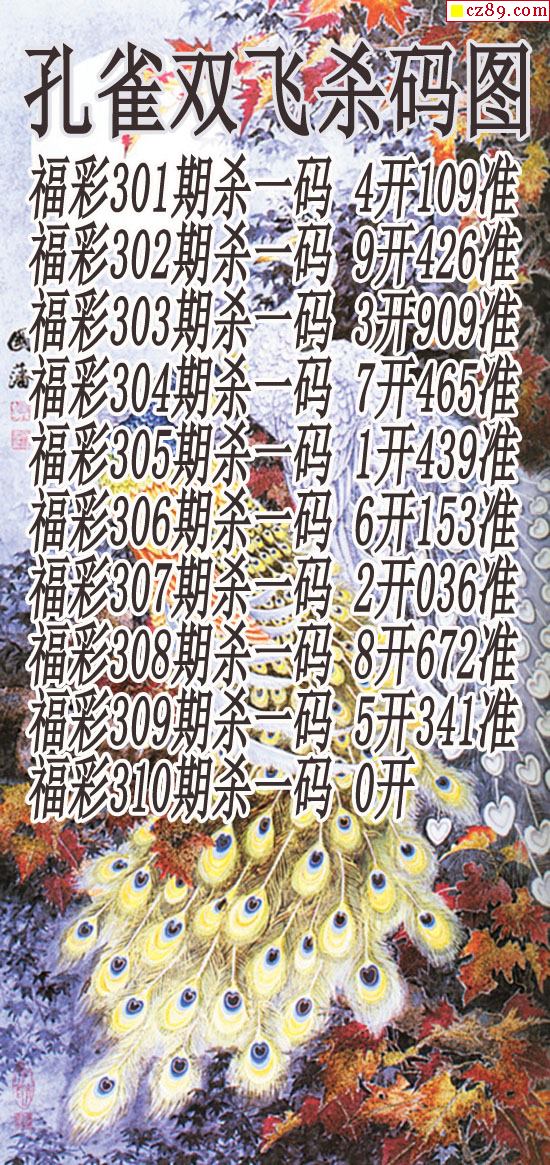 cz89.com
孔雀双飞杀码图
福彩301期杀一码 4开109准
福彩302期杀一码 9开426准
福彩303期杀一码 3开909准
福彩304期杀一码 7开465准
福彩305期杀一码 1开439准
福彩306期杀一码 6开153准
福彩307期杀一码 2开036准
福彩308期杀一码 8开672准
福彩309期杀一码 5开341准
福彩310期杀一码 0开